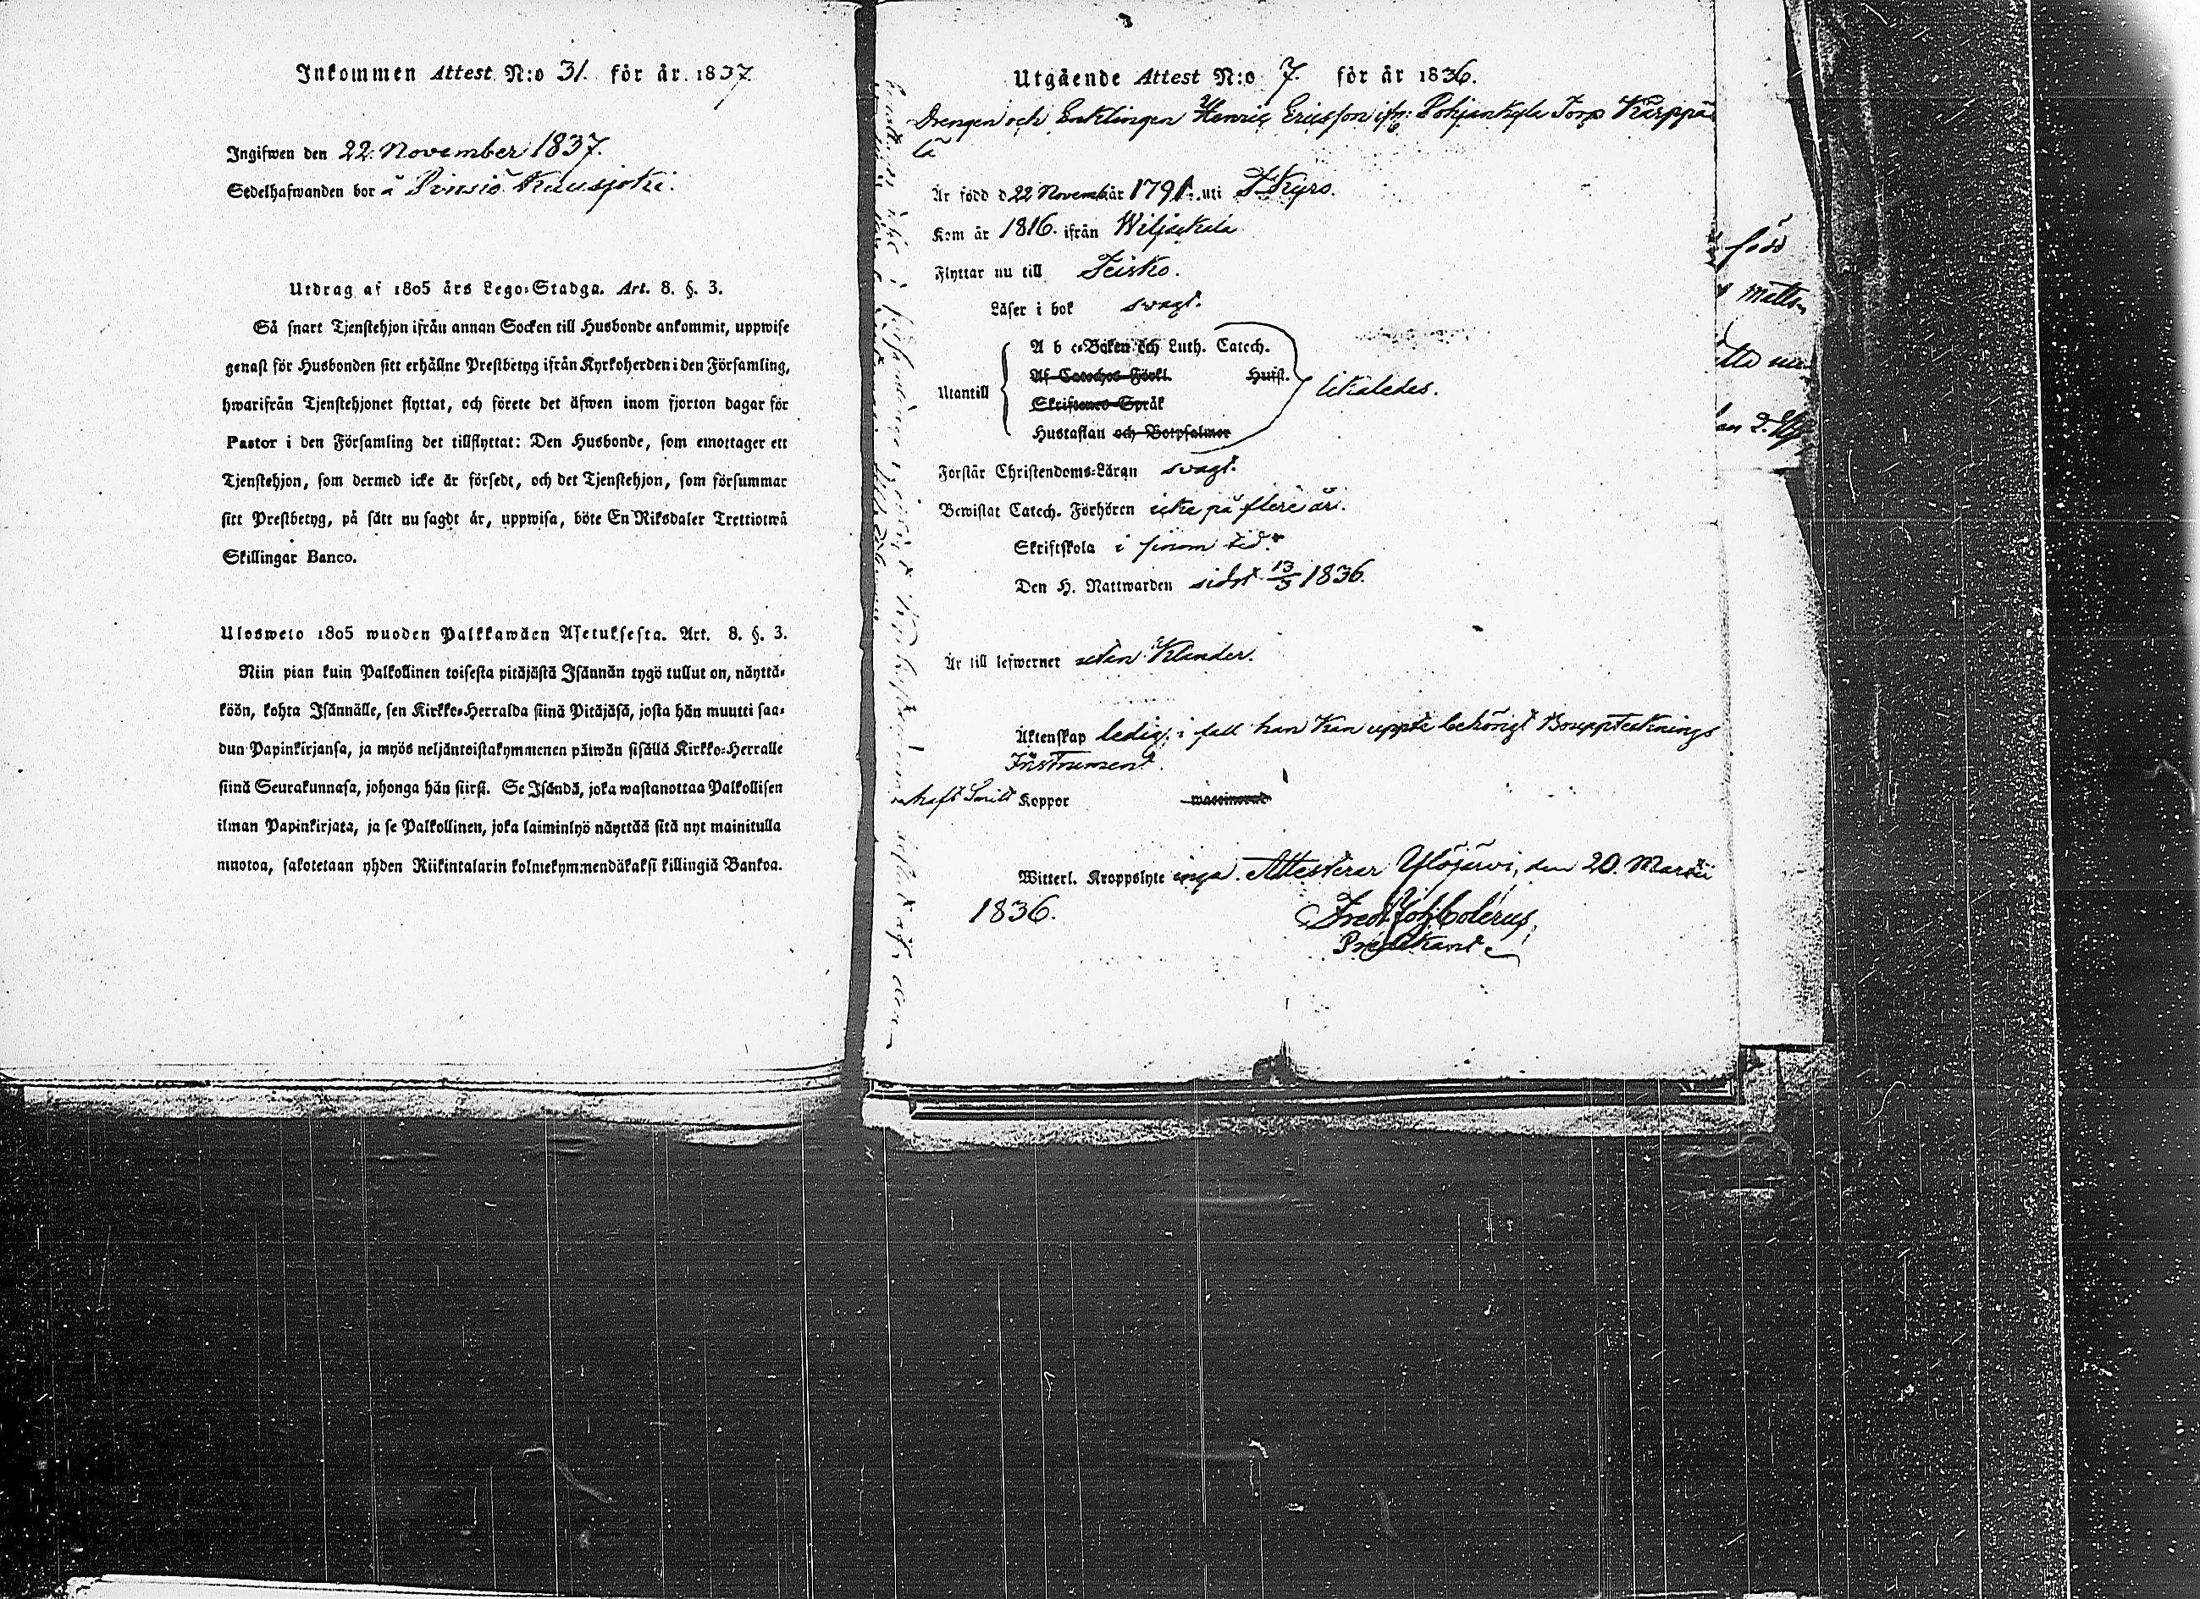 Inkommen Attest N:o 31. för år 1837
Ingifwen den 22. November 1837.
Sedelhafwanden bor å Pinsiö Kuusjoki.
Utdrag af 1805 års Lego-Stadga. Art. 8. §. 3.
Så snart Tjenstehjon ifrån annan Socken till Husbonde ankommit, uppwise
genast för Husbonden sitt erhållne Prestbetyg ifrån Kyrkoherden i den Församling,
hwarifrån Tjenstehjonet flyttat, och förete det äfwen inom fjorton dagar för
Pastor i den Församling det tillflyttat: Den Husbonde, som emottager ett
Tjenstehjon, som dermed icke är försedt, och det Tjenstehjon, som försummar
sitt Prestbetyg, på sätt nu sagdt är, uppwisa, böte En Riksdaler Trettiotwå
Skillingar Banco.
Ulosweto 1805 wuoden Palkkawäen Asetuksesta. Art. 8. §. 3.
Niin pian kuin Palkollinen toisesta pitäjästä Isännän tygö tullut on, näyttä-
köön, kohta Isännälle, sen Kirkko-Herralda siinä Pitäjäsä, josta hän muutti saa-
dun Papinkirjansa, ja myös neljäntoistakymmenen päiwän sisällä Kirkko-Herralle
siinä Seurakunnasa, johonga hän siirsi. Se Isändä, joka wastanottaa Palkollisen
ilman Papinkirjata, ja se Palkollinen, joka laiminlyö näyttää sitä nyt mainitulla
muotoa, sakotetaan yhden Riikintalarin kolmekymmendäkaksi killingiä Bankoa.
Utgående Attest N:o 7. för år 1836.
Drengen och Enklingen Henric Ericsson ifrn: Pohjankylä Torp Kärppä
lä
Är född d 22 November år 1791. uti T. Kyro.
Kom år 1816. ifrån Wiljakala
Flyttar nu till Teisko.
Läser i bok svagt.
Utantill
A b c-Boken och Luth. Catech.
Af Cateches Förkl. Husfl.
Skriftenes Språk
Hustaflan och Botpsalmer
likaledes.
Förstår Christendoms-Läran svagt.
Bewistat Catech. Förhören icke på flere år.
Skriftskola i sinom tid.
Den H. Nattwarden sidst 13/3 1836.
Är till lefwernet utan Klander.
Äktenskap ledig, i fall han kan uppte behörigt Bouppteknings
Instrument.
haft Smitt Koppor
Witterl. Kroppslyte inga. Attesterar Ylöjärwi, den 20. Martii
1836.
Fredr. Joh. Colerus,
Predikant
född
Matts